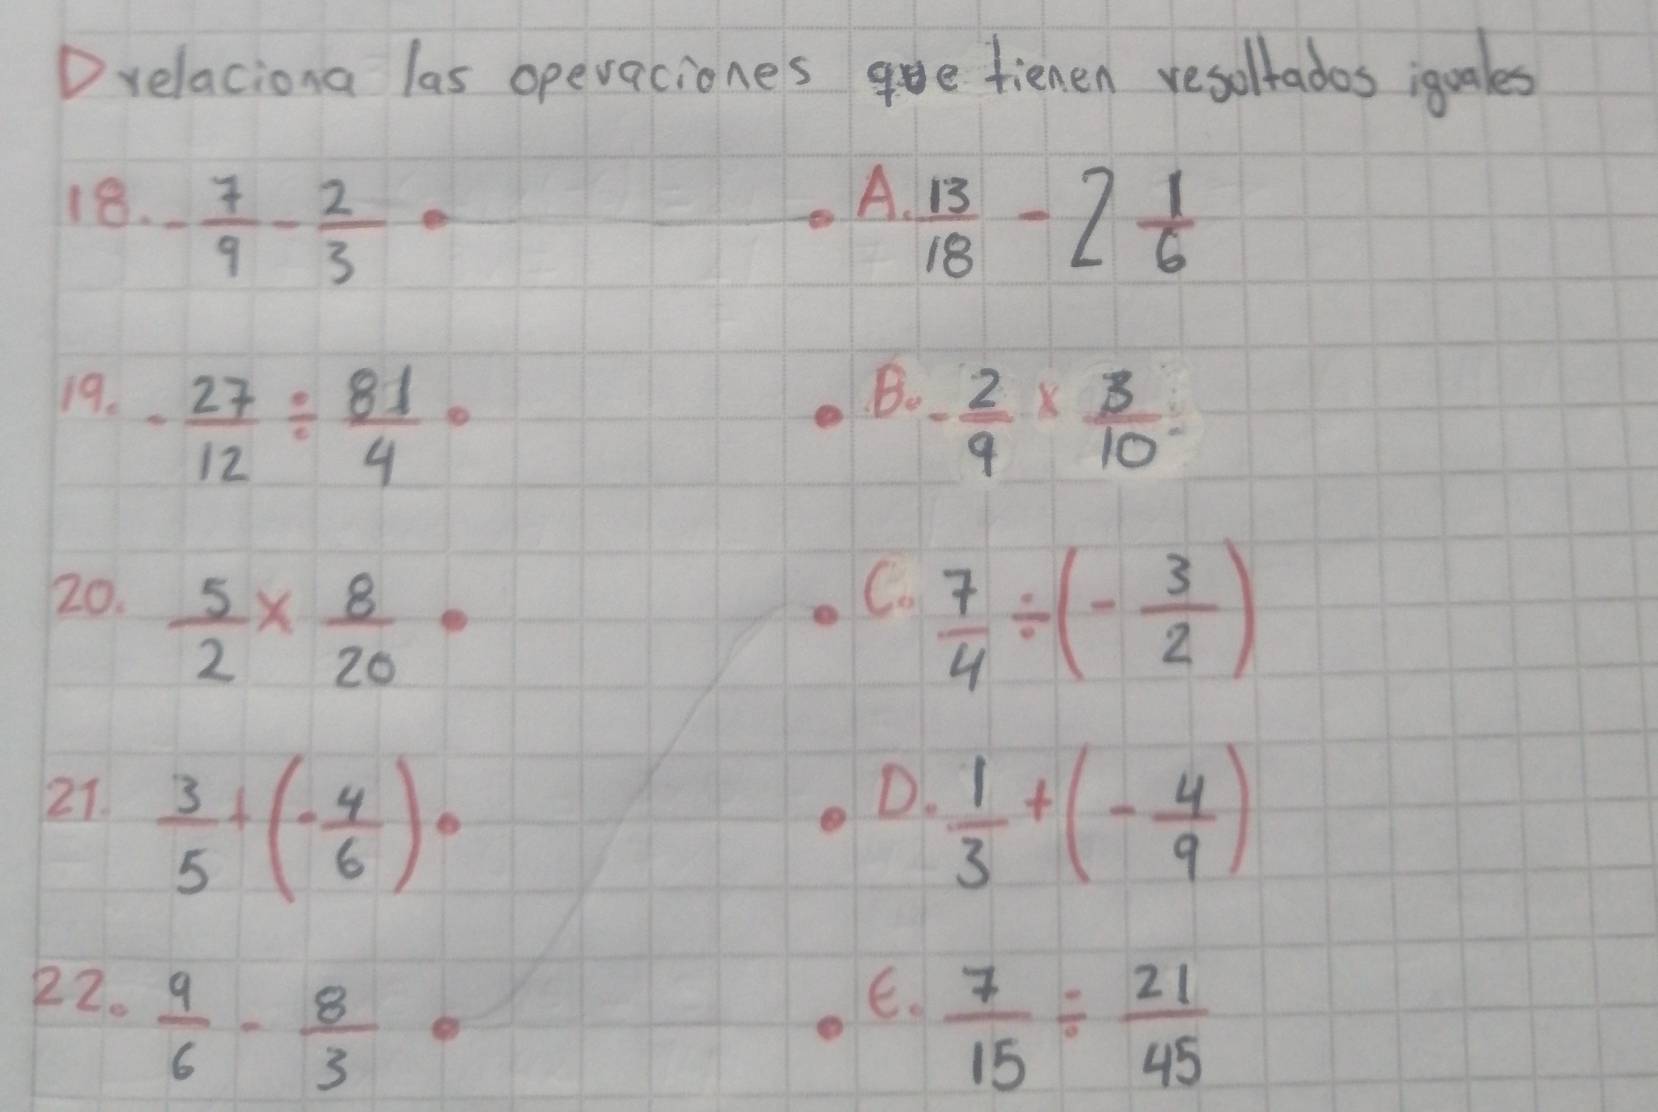 D relaciona las operaciones que tienen resoltados iguales
18. - 7/9 - 2/3 • • A. 13/18 - 2 1/6
19. - 27/12 ÷ 81/4 • • B. - 2/9 x 3/10
20. 5/2 x 8/20 • • C. 7/4 ÷ (- 3/2)
21. 3/5 + (- 4/6) • • D. 1/3 + (- 4/9)
22. 9/6 - 8/3 • • E. 7/15 ÷ 21/45